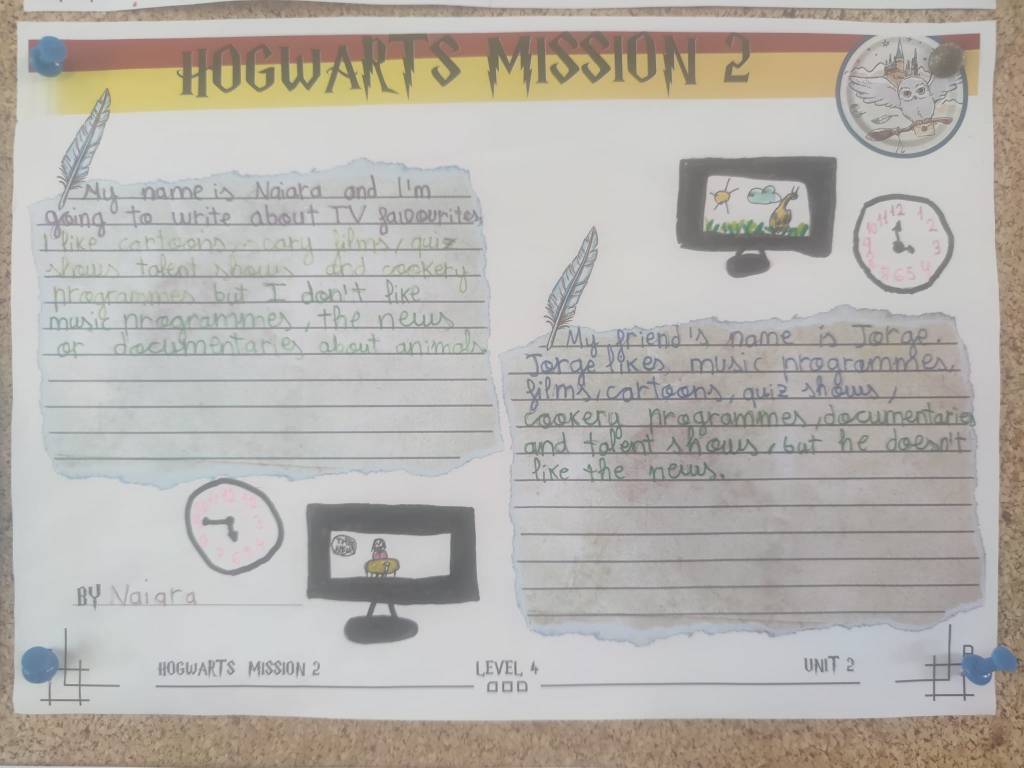 HOGWARTS MISSION 2
My name is Naiara and I'm
going to write about TV favourites
I like cartoons, scary films, quiz
shows talent shows and cookery
programmes but I don't like
music programmes, the news
or documentaries about animals
My friend's name is Jorge.
Jorge likes music programmes,
films, cartoons, quiz shows,
cookery programmes, documentaries
and talent shows, but he doesn't
like the news.
12 1 2 3 4 5 6 7 8 9 10 11
THE
NEWS
BY Naiara
HOGWARTS MISSION 2
LEVEL 4
UNIT 2